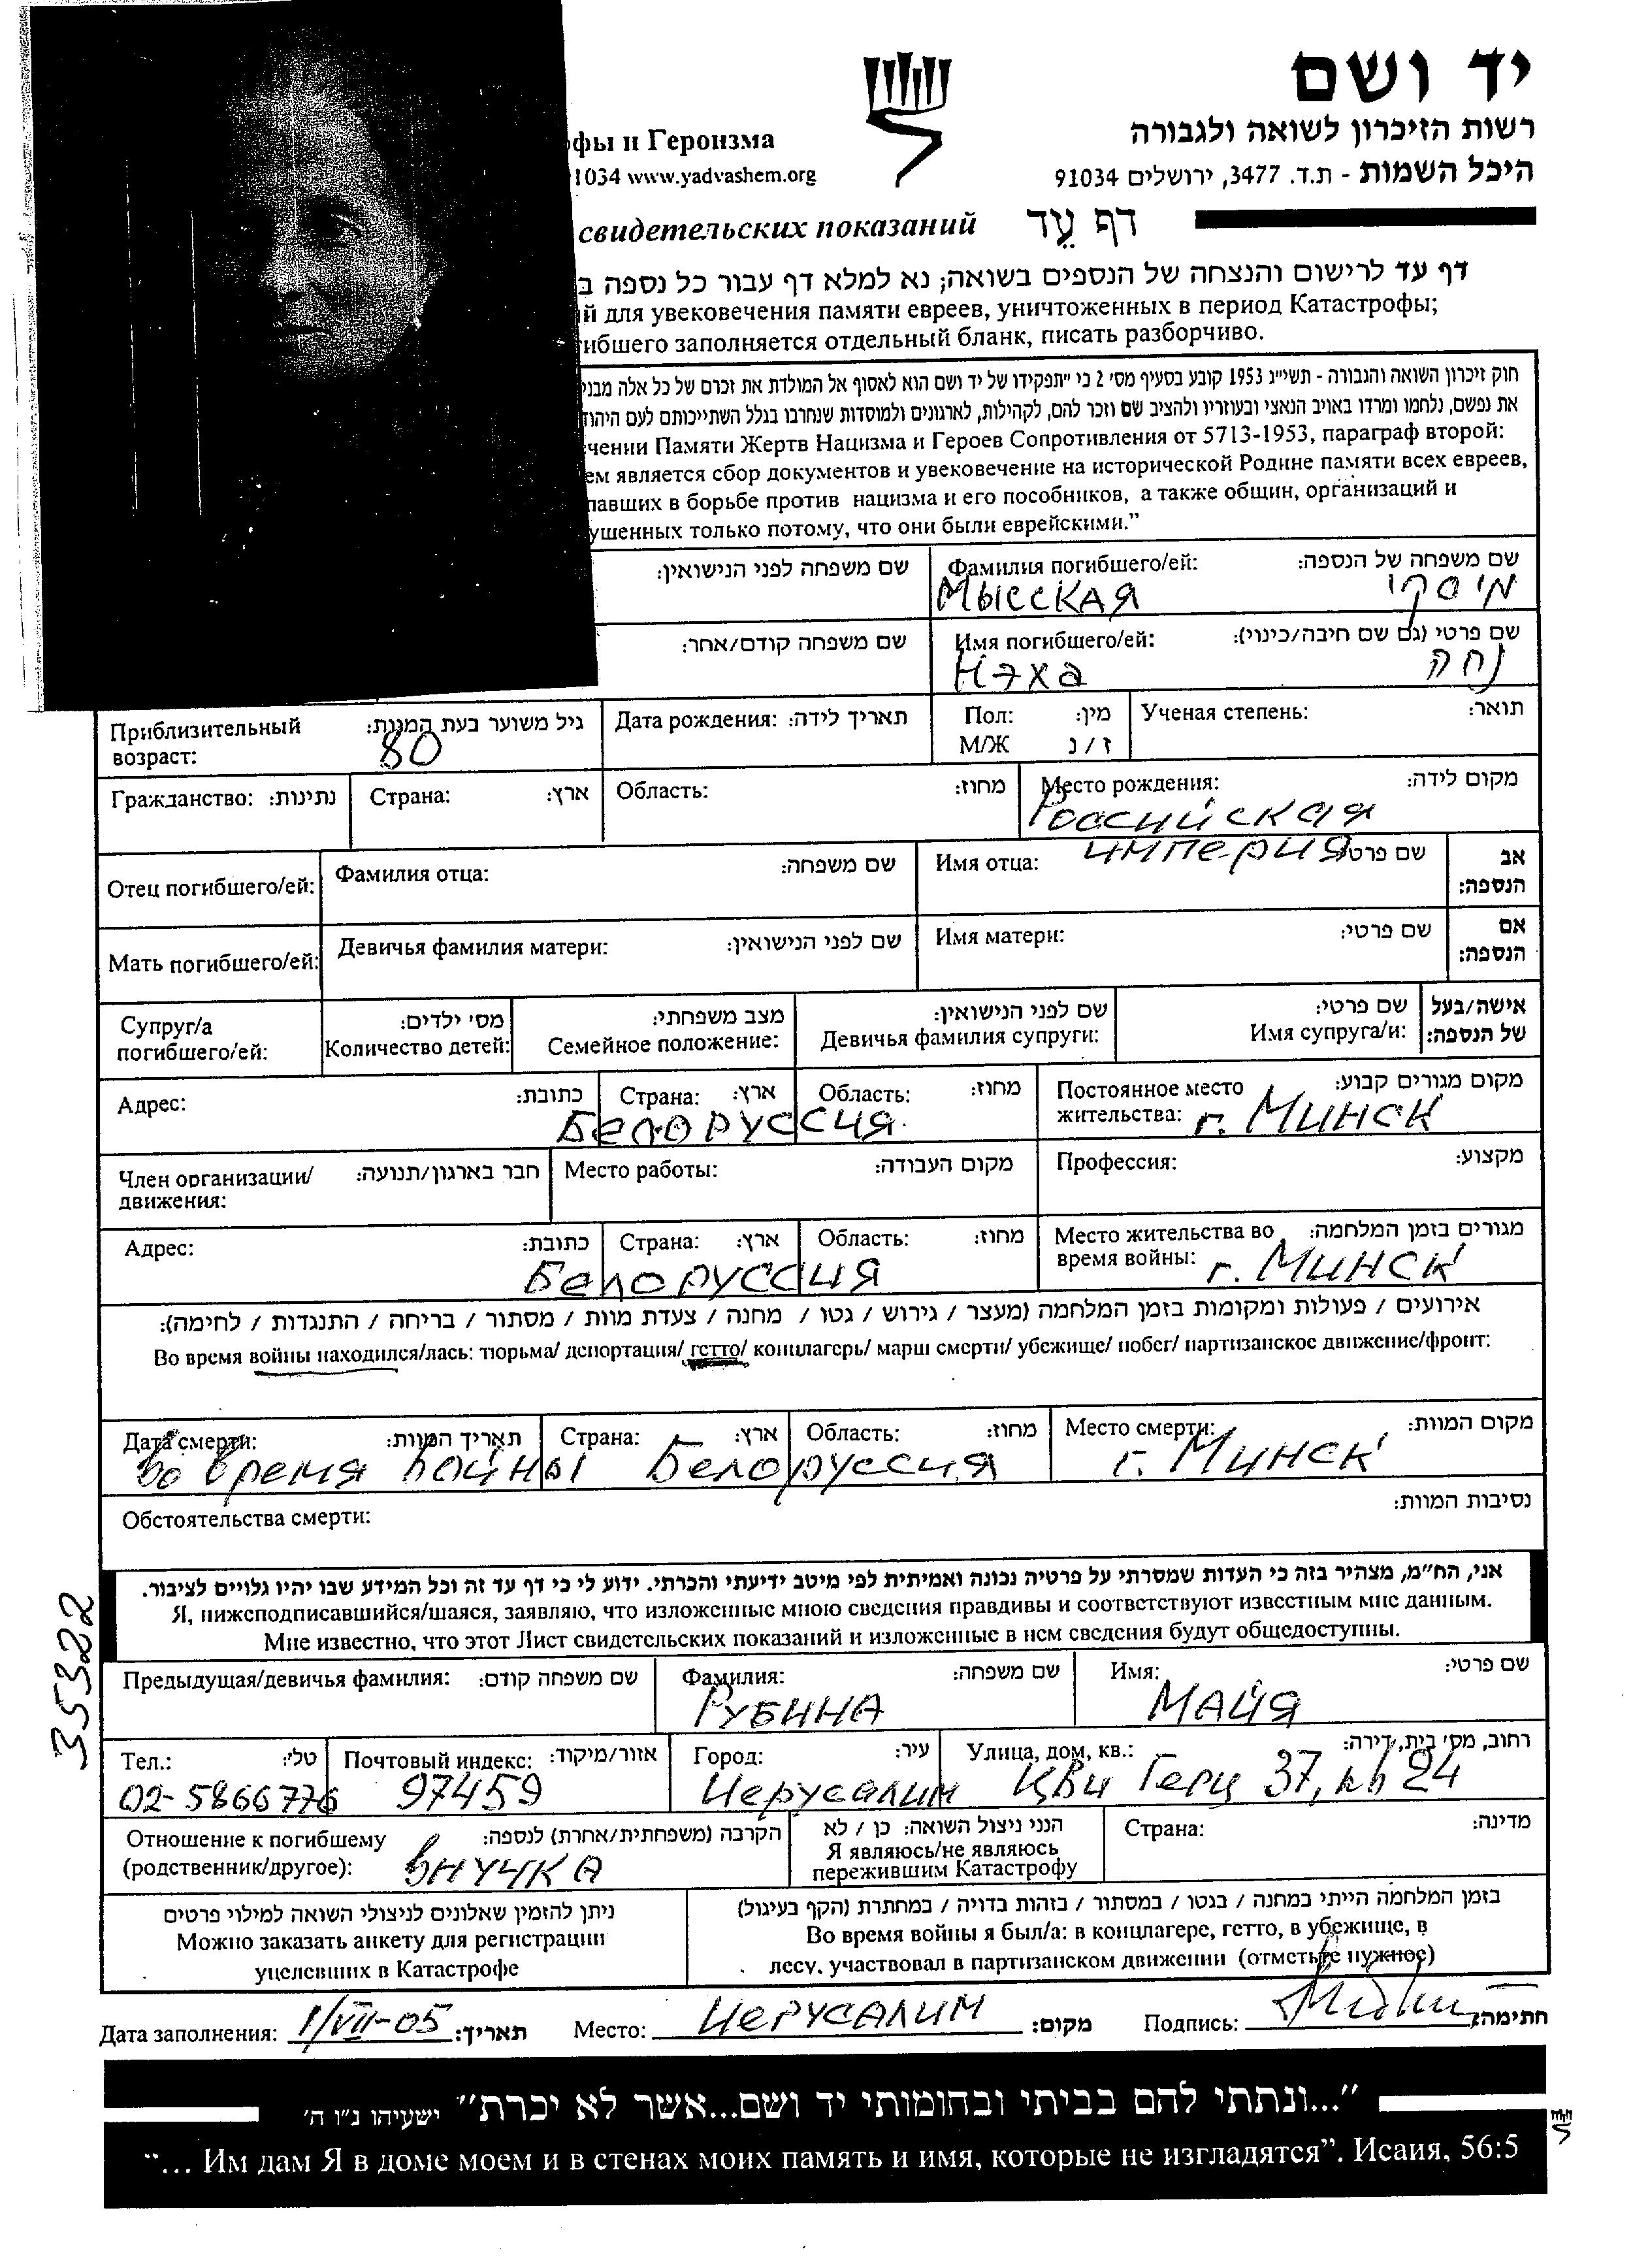 יד ושם
רשות הזיכרון לשואה ולגבורה
фы и Героизма
היכל השמות - ת.ד. 3477, ירושלים 91034
1034 www.yadvashem.org
свидетельских показаний דף עֵד
דף עד לרישום והנצחה של הנספים בשואה; נא למלא דף עבור כל נספה ב
й для увековечения памяти евреев, уничтоженных в период Катастрофы;
гибшего заполняется отдельный бланк, писать разборчиво.
חוק זיכרון השואה והגבורה - תשי״ג 1953 קובע בסעיף מס׳ 2 כי ״תפקידו של יד ושם הוא לאסוף אל המולדת את זכרם של כל אלה מבני
את נפשם, נלחמו ומרדו באויב הנאצי ובעוזריו ולהציב שם וזכר להם, לקהילות, לארגונים ולמוסדות שנחרבו בגלל השתייכותם לעם היהוד
чении Памяти Жертв Нацизма и Героев Сопротивления от 5713-1953, параграф второй:
ем является сбор документов и увековечение на исторической Родине памяти всех евреев,
павших в борьбе против нацизма и его пособников, а также общин, организаций и
ушенных только потому, что они были еврейскими.”
שם משפחה לפני הנישואין: Фамилия погибшего/ей: שם משפחה של הנספה:
Мысская מיסקי
שם משפחה קודם/אחר: Имя погибшего/ей: שם פרטי (גם שם חיבה/כינוי):
Нэха נחה
Приблизительный возраст: גיל משוער בעת המוות: 80 Дата рождения: תאריך לידה: Пол: מין: Ученая степень: תואר:
М/Ж ז / נ
Гражданство: נתינות: Страна: ארץ: Область: מחוז: Место рождения: מקום לידה:
Российская
империя
Отец погибшего/ей: Фамилия отца: שם משפחה: Имя отца: שם פרטי: אב הנספה:
Мать погибшего/ей: Девичья фамилия матери: שם לפני הנישואין: Имя матери: שם פרטי: אם הנספה:
Супруг/а מס׳ ילדים: מצב משפחתי: שם לפני הנישואין: שם פרטי: אישה/בעל
погибшего/ей: Количество детей: Семейное положение: Девичья фамилия супруги: Имя супруга/и: של הנספה:
Адрес: כתובת: Страна: ארץ: Область: מחוז: Постоянное место жительства: מקום מגורים קבוע:
Белоруссия г. Минск
Член организации/движения: חבר בארגון/תנועה: Место работы: מקום העבודה: Профессия: מקצוע:
Адрес: כתובת: Страна: ארץ: Область: מחוז: Место жительства во время войны: מגורים בזמן המלחמה:
Белоруссия г. Минск
אירועים / פעולות ומקומות בזמן המלחמה (מעצר / גירוש / גטו / מחנה / צעדת מוות / מסתור / בריחה / התנגדות / לחימה):
Во время войны находился/лась: тюрьма/ депортация/ гетто/ концлагерь/ марш смерти/ убежище/ побег/ партизанское движение/фронт:
Дата смерти: תאריך המוות: Страна: ארץ: Область: מחוז: Место смерти: מקום המוות:
во время войны Белоруссия г. Минск
Обстоятельства смерти: נסיבות המוות:
אני, הח״מ, מצהיר בזה כי העדות שמסרתי על פרטיה נכונה ואמיתית לפי מיטב ידיעתי והכרתי. ידוע לי כי דף עד זה וכל המידע שבו יהיו גלויים לציבור.
Я, нижеподписавшийся/шаяся, заявляю, что изложенные мною сведения правдивы и соответствуют известным мне данным.
Мне известно, что этот Лист свидетельских показаний и изложенные в нем сведения будут общедоступны.
35322
Предыдущая/девичья фамилия: שם משפחה קודם: Фамилия: שם משפחה: Имя: שם פרטי:
Рубина Майя
Тел.: טלי: Почтовый индекс: אזור/מיקוד: Город: עיר: Улица, дом, кв.: רחוב, מס׳ בית, דירה:
02-5866776 97459 Иерусалим Цви Герц 37, кв 24
Отношение к погибшему הקרבה (משפחתית/אחרת) לנספה: הנני ניצול השואה: כן / לא Страна: מדינה:
(родственник/другое): внучка Я являюсь/не являюсь
пережившим Катастрофу
ניתן להזמין שאלונים לניצולי השואה למילוי פרטים בזמן המלחמה הייתי במחנה / בגטו / במסתור / בזהות בדויה / במחתרת (הקף בעיגול)
Можно заказать анкету для регистрации Во время войны я был/а: в концлагере, гетто, в убежище, в
уцелевших в Катастрофе лесу, участвовал в партизанском движении (отметьте нужное)
Дата заполнения: 1/VII-05 תאריך: Место: Иерусалим מקום: Подпись: חתימה:
״...ונתתי להם בביתי ובחומותי יד ושם...אשר לא יכרת״ ישעיהו נ״ו ה׳
“... Им дам Я в доме моем и в стенах моих память и имя, которые не изгладятся”. Исаия, 56:5